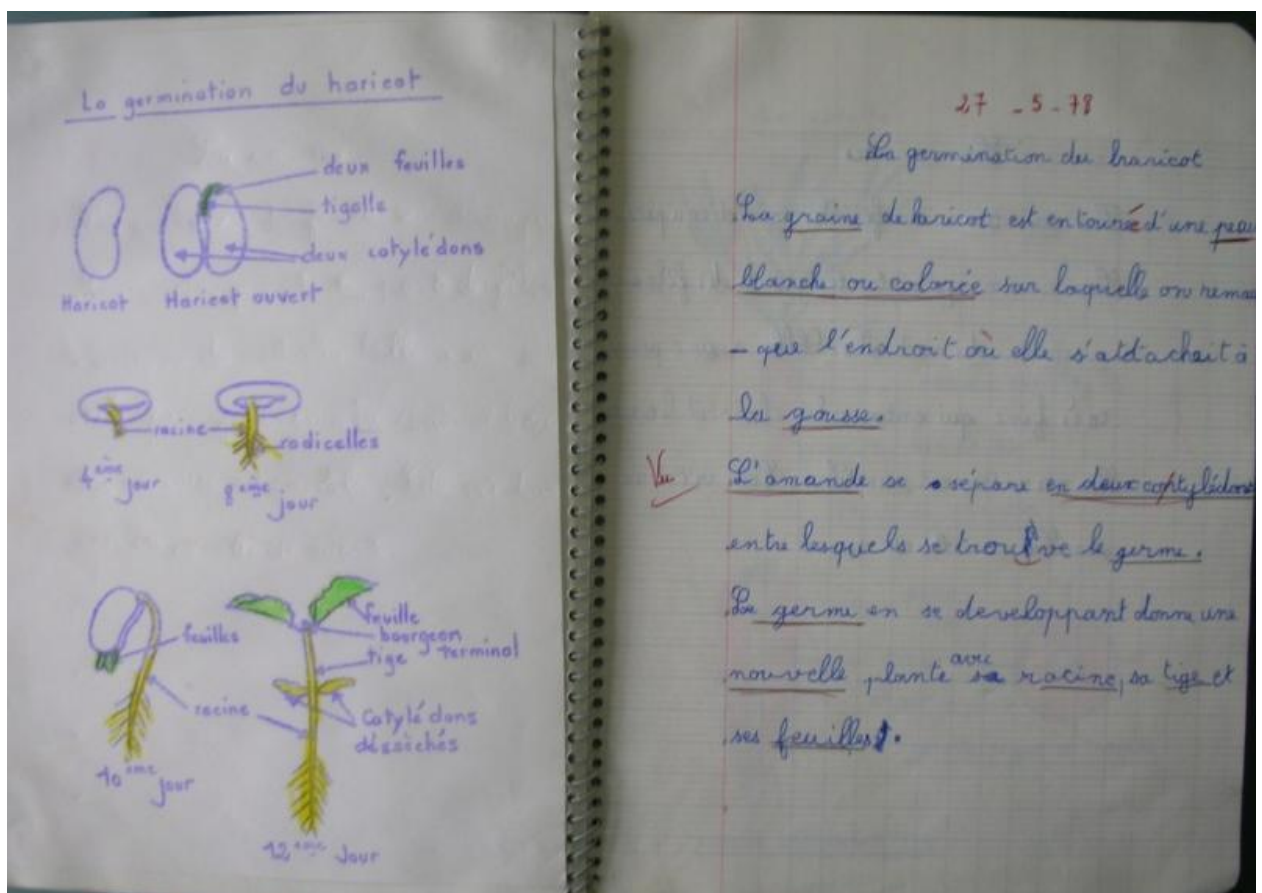 La germination du haricot
deux feuilles
tigelle
deux cotylédons
Haricot
Haricot ouvert
racine
radicelles
4ème jour
8ème jour
feuilles
racine
10ème jour
feuille
bourgeon
terminal
tige
Cotylédons
désséchés
12ème Jour
27 - 5 - 78
La germination du haricot
La graine de haricot est entourée d'une peau
blanche ou colorée sur laquelle on remar
- que l'endroit où elle s'attachait à
la gousse.
Vu
L'amande se sépare en deux coptylédons
entre lesquels se trouve le germe.
Le germe en se developpant donne une
nouvelle plante avec sa racine, sa tige et
ses feuilles.